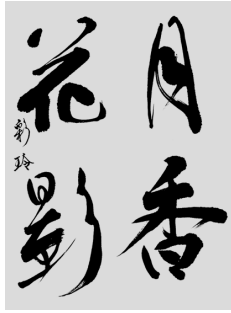 月香
花影
彩玲